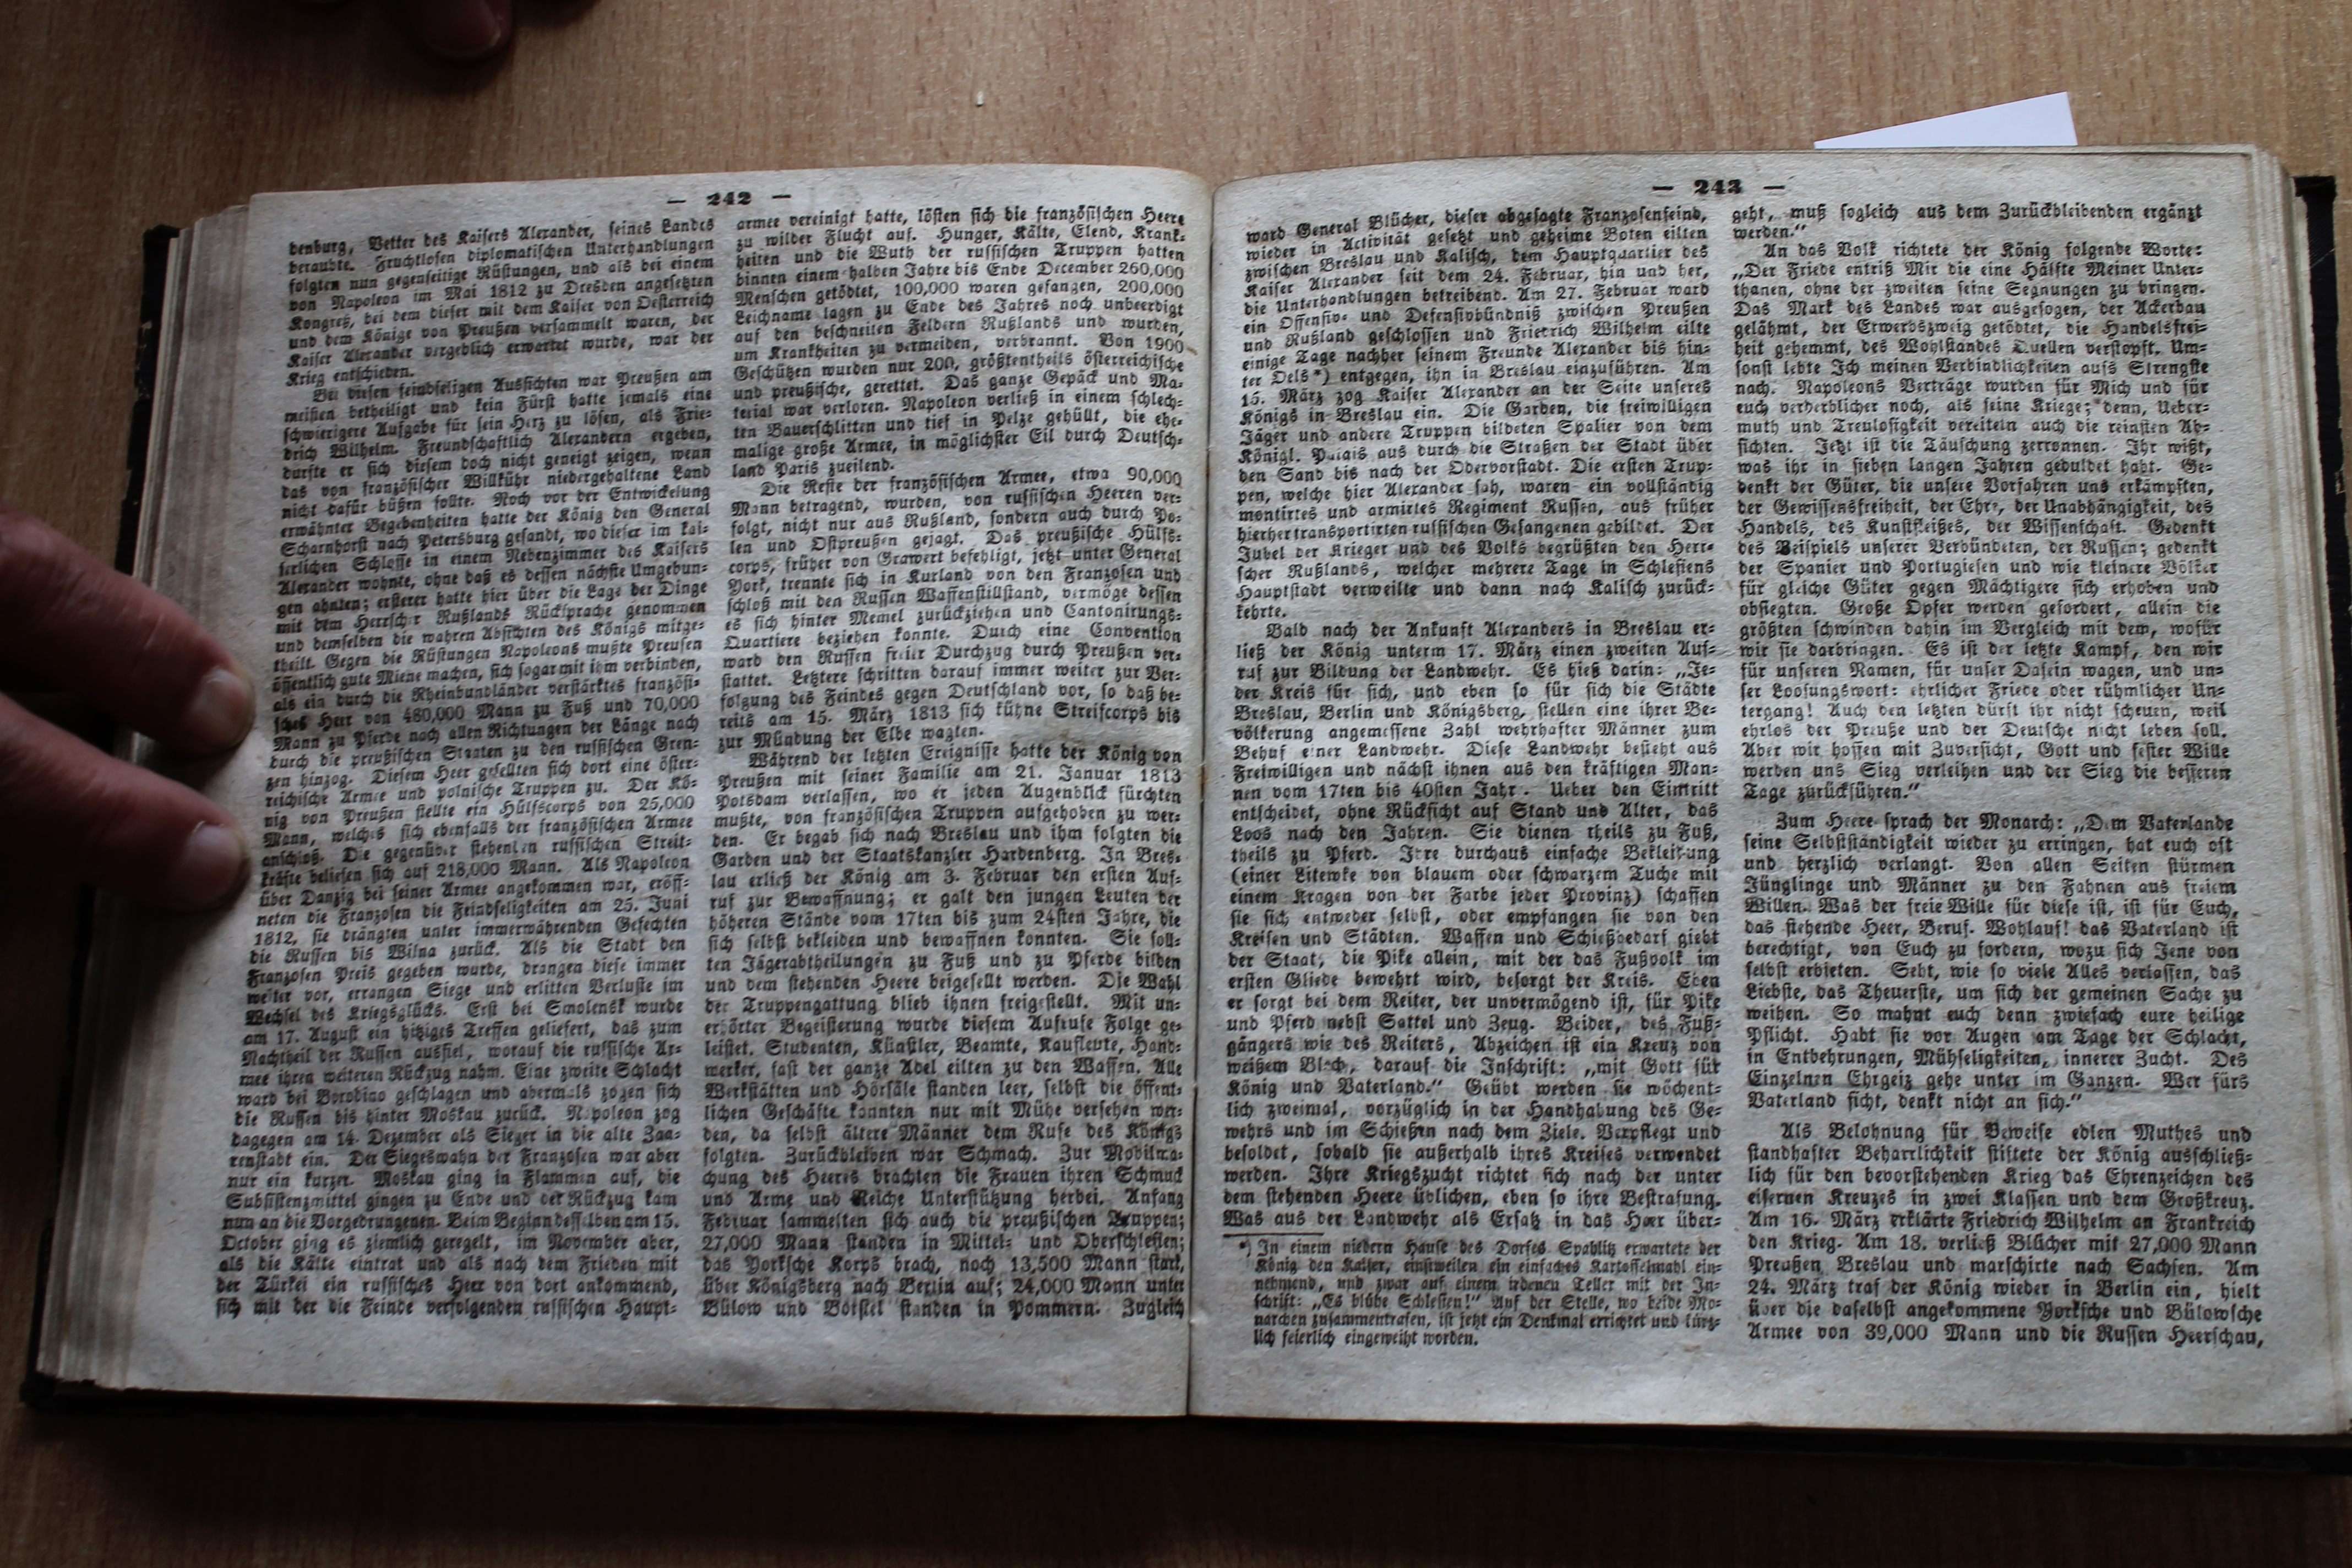 — 242 —
denburg, Vetter des Kaisers Alexander, seines Landes
beraubte. Fruchtlosen diplomatischen Unterhandlungen
folgten nun gegenseitige Rüstungen, und als bei einem
von Napoleon im Mai 1812 zu Dresden angesetzten
Kongreß, bei dem dieser mit dem Kaiser von Oesterreich
und dem Könige von Preußen versammelt waren, der
Kaiser Alexander vergeblich erwartet wurde, war der
Krieg entschieden.
Bei diesen feindseligen Aussichten war Preußen am
meisten betheiligt und kein Fürst hatte jemals eine
schwierigere Aufgabe für sein Herz zu lösen, als Frie-
drich Wilhelm. Freundschaftlich Alexandern ergeben,
durfte er sich diesem doch nicht geneigt zeigen, wenn
das von französischer Willkühr niedergehaltene Land
nicht dafür büßen sollte. Noch vor der Entwickelung
erwähnter Begebenheiten hatte der König den General
Scharnhorst nach Petersburg gesandt, wo dieser im kai-
serlichen Schlosse in einem Nebenzimmer des Kaisers
Alexander wohnte, ohne daß es dessen nächste Umgebun-
gen ahnten; ersterer hatte hier über die Lage der Dinge
mit dem Herrscher Rußlands Rücksprache genommen
und demselben die wahren Absichten des Königs mitge-
theilt. Gegen die Rüstungen Napoleons mußte Preußen
öffentlich gute Miene machen, sich sogar mit ihm verbinden,
als ein durch die Rheinbundländer verstärktes französi-
sches Heer von 480,000 Mann zu Fuß und 70,000
Mann zu Pferde nach allen Richtungen der Länge nach
durch die preußischen Staaten zu den russischen Gren-
zen hinzog. Diesem Heer gesellten sich dort eine öster-
reichische Armee und polnische Truppen zu. Der Kö-
nig von Preußen stellte ein Hülfscorps von 25,000
Mann, welches sich ebenfalls der französischen Armee
anschloß. Die gegenüber stehenden russischen Streit-
kräfte beliefen sich auf 218,000 Mann. Als Napoleon
über Danzig bei seiner Armee angekommen war, eröff-
neten die Franzosen die Feindseligkeiten am 25. Juni
1812, sie drängten unter immerwährenden Gefechten
die Russen bis Wilna zurück. Als die Stadt den
Franzosen Preis gegeben wurde, drangen diese immer
weiter vor, errangen Siege und erlitten Verluste im
Wechsel des Kriegsglücks. Erst bei Smolensk wurde
am 17. August ein hitziges Treffen geliefert, das zum
Nachtheil der Russen ausfiel, worauf die russische Ar-
mee ihren weiteren Rückzug nahm. Eine zweite Schlacht
ward bei Borodino geschlagen und abermals zogen sich
die Russen bis hinter Moskau zurück. Napoleon zog
dagegen am 14. Dezember als Sieger in die alte Zaa-
renstadt ein. Der Siegeswahn der Franzosen war aber
nur ein kurzer. Moskau ging in Flammen auf, die
Subsistenzmittel gingen zu Ende und der Rückzug kam
nun an die Vorgedrungenen. Beim Beginn desselben am 15.
October ging es ziemlich geregelt, im November aber,
als die Kälte eintrat und als nach dem Frieden mit
der Türkei ein russisches Heer von dort ankommend,
sich mit der die Feinde verfolgenden russischen Haupt-
armee vereinigt hatte, lösten sich die französischen Heere
zu wilder Flucht auf. Hunger, Kälte, Elend, Krank-
heiten und die Wuth der russischen Truppen hatten
binnen einem halben Jahre bis Ende December 260,000
Menschen getödtet, 100,000 waren gefangen, 200,000
Leichname lagen zu Ende des Jahres noch unbeerdigt
auf den beschneiten Feldern Rußlands und wurden,
um Krankheiten zu vermeiden, verbrannt. Von 1900
Geschützen wurden nur 200, größtentheils österreichische
und preußische, gerettet. Das ganze Gepäck und Ma-
terial war verloren. Napoleon verließ in einem schlech-
ten Bauerschlitten und tief in Pelze gehüllt, die ehe-
malige große Armee, in möglichster Eil durch Deutsch-
land Paris zueilend.
Die Reste der französischen Armee, etwa 90,000
Mann betragend, wurden, von russischen Heeren ver-
folgt, nicht nur aus Rußland, sondern auch durch Po-
len und Ostpreußen gejagt. Das preußische Hülfs-
corps, früher von Grawert befehligt, jetzt unter General
York, trennte sich in Kurland von den Franzosen und
schloß mit den Russen Waffenstillstand, vermöge dessen
es sich hinter Memel zurückziehen und Cantonirungs-
Quartiere beziehen konnte. Durch eine Convention
ward den Russen freier Durchzug durch Preußen ver-
stattet. Letztere schritten darauf immer weiter zur Ver-
folgung des Feindes gegen Deutschland vor, so daß be-
reits am 15. März 1813 sich kühne Streifcorps bis
zur Mündung der Elbe wagten.
Während der letzten Ereignisse hatte der König von
Preußen mit seiner Familie am 21. Januar 1813
Potsdam verlassen, wo er jeden Augenblick fürchten
mußte, von französischen Truppen aufgehoben zu wer-
den. Er begab sich nach Breslau und ihm folgten die
Garden und der Staatskanzler Hardenberg. In Bres-
lau erließ der König am 3. Februar den ersten Auf-
ruf zur Bewaffnung; er galt den jungen Leuten der
höheren Stände vom 17ten bis zum 24sten Jahre, die
sich selbst bekleiden und bewaffnen konnten. Sie soll-
ten Jägerabtheilungen zu Fuß und zu Pferde bilden
und dem stehenden Heere beigesellt werden. Die Wahl
der Truppengattung blieb ihnen freigestellt. Mit un-
erhörter Begeisterung wurde diesem Aufrufe Folge ge-
leistet. Studenten, Künstler, Beamte, Kaufleute, Hand-
werker, fast der ganze Adel eilten zu den Waffen. Alle
Werkstätten und Hörsäle standen leer, selbst die öffent-
lichen Geschäfte konnten nur mit Mühe versehen wer-
den, da selbst ältere Männer dem Rufe des Königs
folgten. Zurückbleiben war Schmach. Zur Mobilma-
chung des Heeres brachten die Frauen ihren Schmuck
und Arme und Reiche Unterstützung herbei. Anfang
Februar sammelten sich auch die preußischen Truppen;
27,000 Mann standen in Mittel- und Oberschlesien;
das Yorksche Korps brach, noch 13,500 Mann stark,
über Königsberg nach Berlin auf; 24,000 Mann unter
Bülow und Borstel standen in Pommern. Zugleich
— 243 —
ward General Blücher, dieser abgesagte Franzosenfeind,
wieder in Activität gesetzt und geheime Boten eilten
zwischen Breslau und Kalisch, dem Hauptquartier des
Kaiser Alexander seit dem 24. Februar, hin und her,
die Unterhandlungen betreibend. Am 27. Februar ward
ein Offensiv- und Defensivbündniß zwischen Preußen
und Rußland geschlossen und Friedrich Wilhelm eilte
einige Tage nachher seinem Freunde Alexander bis hin-
ter Oels*) entgegen, ihn in Breslau einzuführen. Am
15. März zog Kaiser Alexander an der Seite unseres
Königs in Breslau ein. Die Garden, die freiwilligen
Jäger und andere Truppen bildeten Spalier von dem
Königl. Palais aus durch die Straßen der Stadt über
den Sand bis nach der Odervorstadt. Die ersten Trup-
pen, welche hier Alexander sah, waren ein vollständig
montirtes und armirtes Regiment Russen, aus früher
hierher transportirten russischen Gefangenen gebildet. Der
Jubel der Krieger und des Volks begrüßten den Herr-
scher Rußlands, welcher mehrere Tage in Schlesiens
Hauptstadt verweilte und dann nach Kalisch zurück-
kehrte.
Bald nach der Ankunft Alexanders in Breslau er-
ließ der König unterm 17. März einen zweiten Auf-
ruf zur Bildung der Landwehr. Es hieß darin: „Je-
der Kreis für sich, und eben so für sich die Städte
Breslau, Berlin und Königsberg, stellen eine ihrer Be-
völkerung angemessene Zahl wehrhafter Männer zum
Behuf einer Landwehr. Diese Landwehr besteht aus
Freiwilligen und nächst ihnen aus den kräftigen Man-
nen vom 17ten bis 40sten Jahr. Ueber den Eintritt
entscheidet, ohne Rücksicht auf Stand und Alter, das
Loos nach den Jahren. Sie dienen theils zu Fuß,
theils zu Pferd. Ihre durchaus einfache Bekleidung
(einer Litewke von blauem oder schwarzem Tuche mit
einem Kragen von der Farbe jeder Provinz) schaffen
sie sich entweder selbst, oder empfangen sie von den
Kreisen und Städten. Waffen und Schießbedarf giebt
der Staat, die Pike allein, mit der das Fußvolk im
ersten Gliede bewehrt wird, besorgt der Kreis. Eben
er sorgt bei dem Reiter, der unvermögend ist, für Pike
und Pferd nebst Sattel und Zeug. Beider, des Fuß-
gängers wie des Reiters, Abzeichen ist ein Kreuz von
weißem Blech, darauf die Inschrift: „mit Gott für
König und Vaterland.“ Geübt werden sie wöchent-
lich zweimal, vorzüglich in der Handhabung des Ge-
wehrs und im Schießen nach dem Ziele. Verpflegt und
besoldet, sobald sie außerhalb ihres Kreises verwendet
werden. Ihre Kriegszucht richtet sich nach der unter
dem stehenden Heere üblichen, eben so ihre Bestrafung.
Was aus der Landwehr als Ersatz in das Heer über-
*) In einem niedern Hause des Dorfes Spahlitz erwartete der
König den Kaiser, einstweilen ein einfaches Kartoffelmahl ein-
nehmend, und zwar auf einem irdenen Teller mit der In-
schrift: „Es blühe Schlesien!“ Auf der Stelle, wo beide Mo-
narchen zusammentrafen, ist jetzt ein Denkmal errichtet und kürz-
lich feierlich eingeweiht worden.
geht, muß sogleich aus dem Zurückbleibenden ergänzt
werden.“
An das Volk richtete der König folgende Worte:
„Der Friede entriß Mir die eine Hälfte Meiner Unter-
thanen, ohne der zweiten seine Segnungen zu bringen.
Das Mark des Landes war ausgesogen, der Ackerbau
gelähmt, der Erwerbszweig getödtet, die Handelsfrei-
heit gehemmt, des Wohlstandes Quellen verstopft. Um-
sonst lebte Ich meinen Verbindlichkeiten aufs Strengste
nach. Napoleons Verträge wurden für Mich und für
euch verderblicher noch, als seine Kriege; denn, Ueber-
muth und Treulosigkeit vereiteln auch die reinsten Ab-
sichten. Jetzt ist die Täuschung zerronnen. Ihr wißt,
was ihr in sieben langen Jahren geduldet habt. Ge-
denkt der Güter, die unsere Vorfahren uns erkämpften,
der Gewissensfreiheit, der Ehre, der Unabhängigkeit, des
Handels, des Kunstfleißes, der Wissenschaft. Gedenkt
des Beispiels unserer Verbündeten, der Russen; gedenkt
der Spanier und Portugiesen und wie kleinere Völker
für gleiche Güter gegen Mächtigere sich erhoben und
obsiegten. Große Opfer werden gefordert, allein die
größten schwinden dahin im Vergleich mit dem, wofür
wir sie darbringen. Es ist der letzte Kampf, den wir
für unseren Namen, für unser Dasein wagen, und un-
ser Loosungswort: ehrlicher Friede oder rühmlicher Un-
tergang! Auch den letzten dürft ihr nicht scheuen, weil
ehrlos der Preuße und der Deutsche nicht leben soll.
Aber wir hoffen mit Zuversicht, Gott und fester Wille
werden uns Sieg verleihen und der Sieg die besseren
Tage zurückführen.“
Zum Heere sprach der Monarch: „Dem Vaterlande
seine Selbstständigkeit wieder zu erringen, hat euch oft
und herzlich verlangt. Von allen Seiten stürmen
Jünglinge und Männer zu den Fahnen aus freiem
Willen. Was der freie Wille für diese ist, ist für Euch,
das stehende Heer, Beruf. Wohlauf! das Vaterland ist
berechtigt, von Euch zu fordern, wozu sich Jene von
selbst erbieten. Seht, wie so viele Alles verlassen, das
Liebste, das Theuerste, um sich der gemeinen Sache zu
weihen. So mahnt euch denn zwiefach eure heilige
Pflicht. Habt sie vor Augen am Tage der Schlacht,
in Entbehrungen, Mühseligkeiten, innerer Zucht. Des
Einzelnen Ehrgeiz gehe unter im Ganzen. Wer fürs
Vaterland ficht, denkt nicht an sich.“
Als Belohnung für Beweise edlen Muthes und
standhafter Beharrlichkeit stiftete der König ausschließ-
lich für den bevorstehenden Krieg das Ehrenzeichen des
eisernen Kreuzes in zwei Klassen und dem Großkreuz.
Am 16. März erklärte Friedrich Wilhelm an Frankreich
den Krieg. Am 18. verließ Blücher mit 27,000 Mann
Preußen Breslau und marschirte nach Sachsen. Am
24. März traf der König wieder in Berlin ein, hielt
über die daselbst angekommene Yorksche und Bülowsche
Armee von 39,000 Mann und die Russen Heerschau,